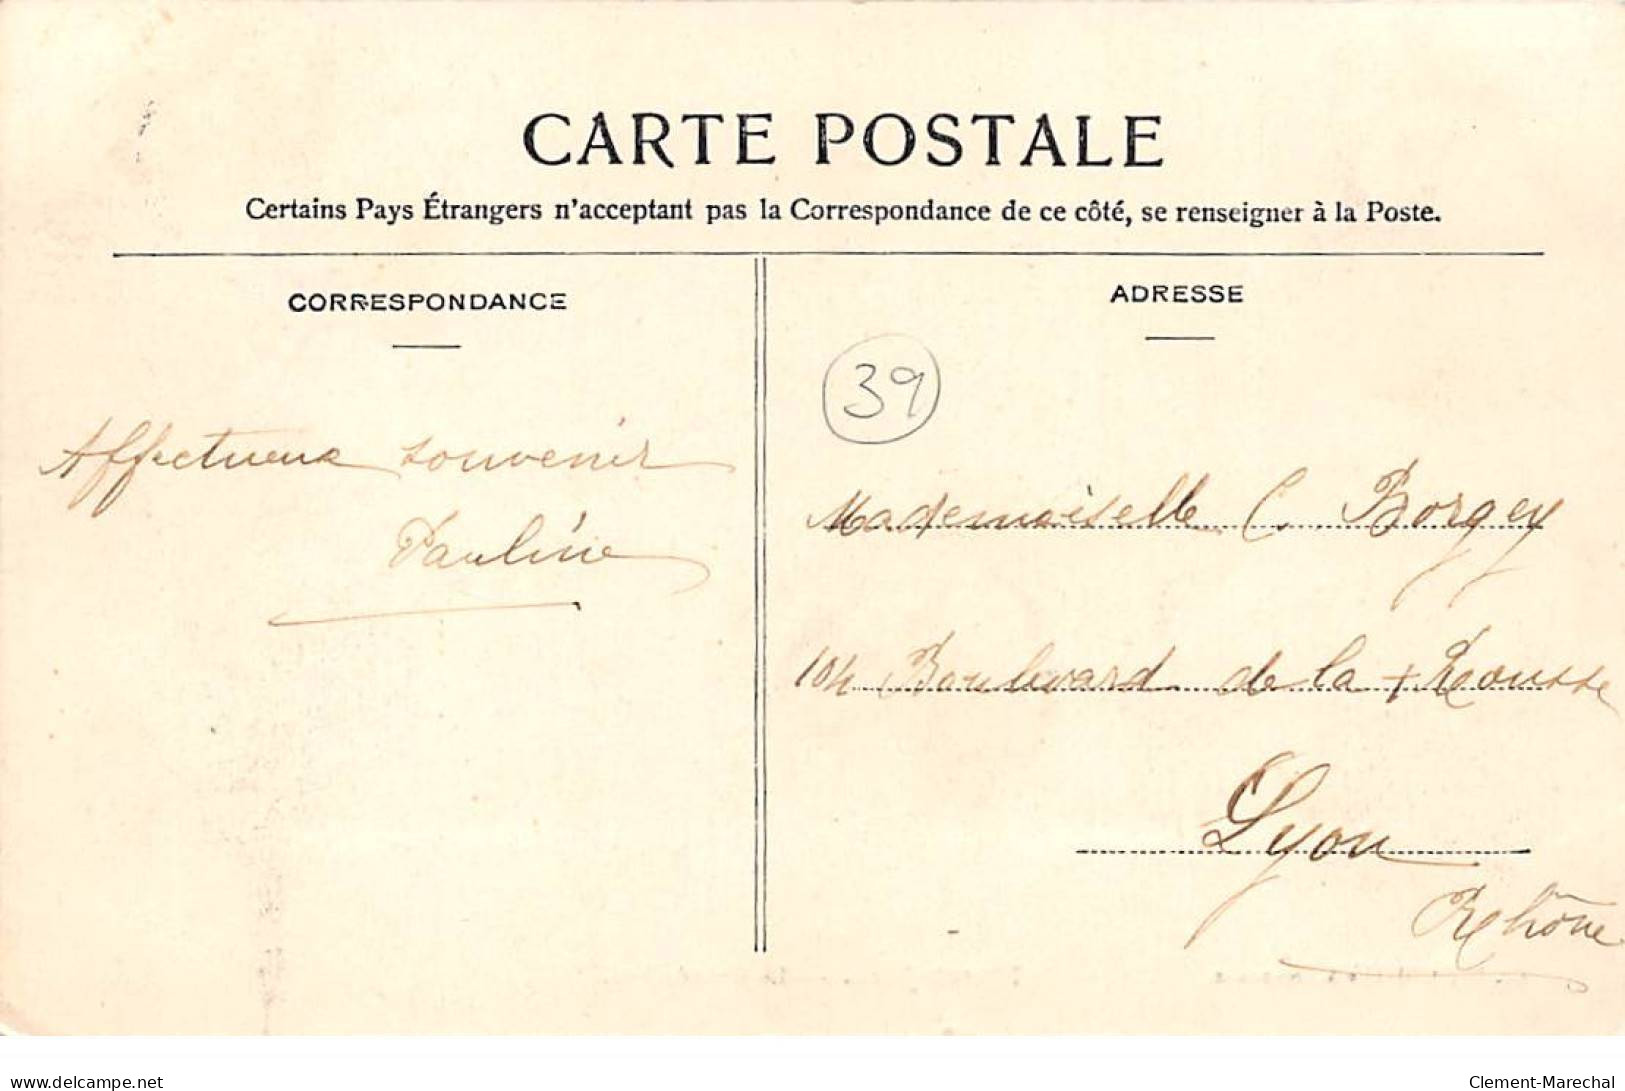 CARTE POSTALE
Certains Pays Étrangers n'acceptant pas la Correspondance de ce côté, se renseigner à la Poste.
CORRESPONDANCE
Affectueux souvenir
Pauline
ADRESSE
39
Mademoiselle C. Borgey
104 Boulevard de la + Rousse
Lyon
Rhône
delcampe.net
Clement-Marechal